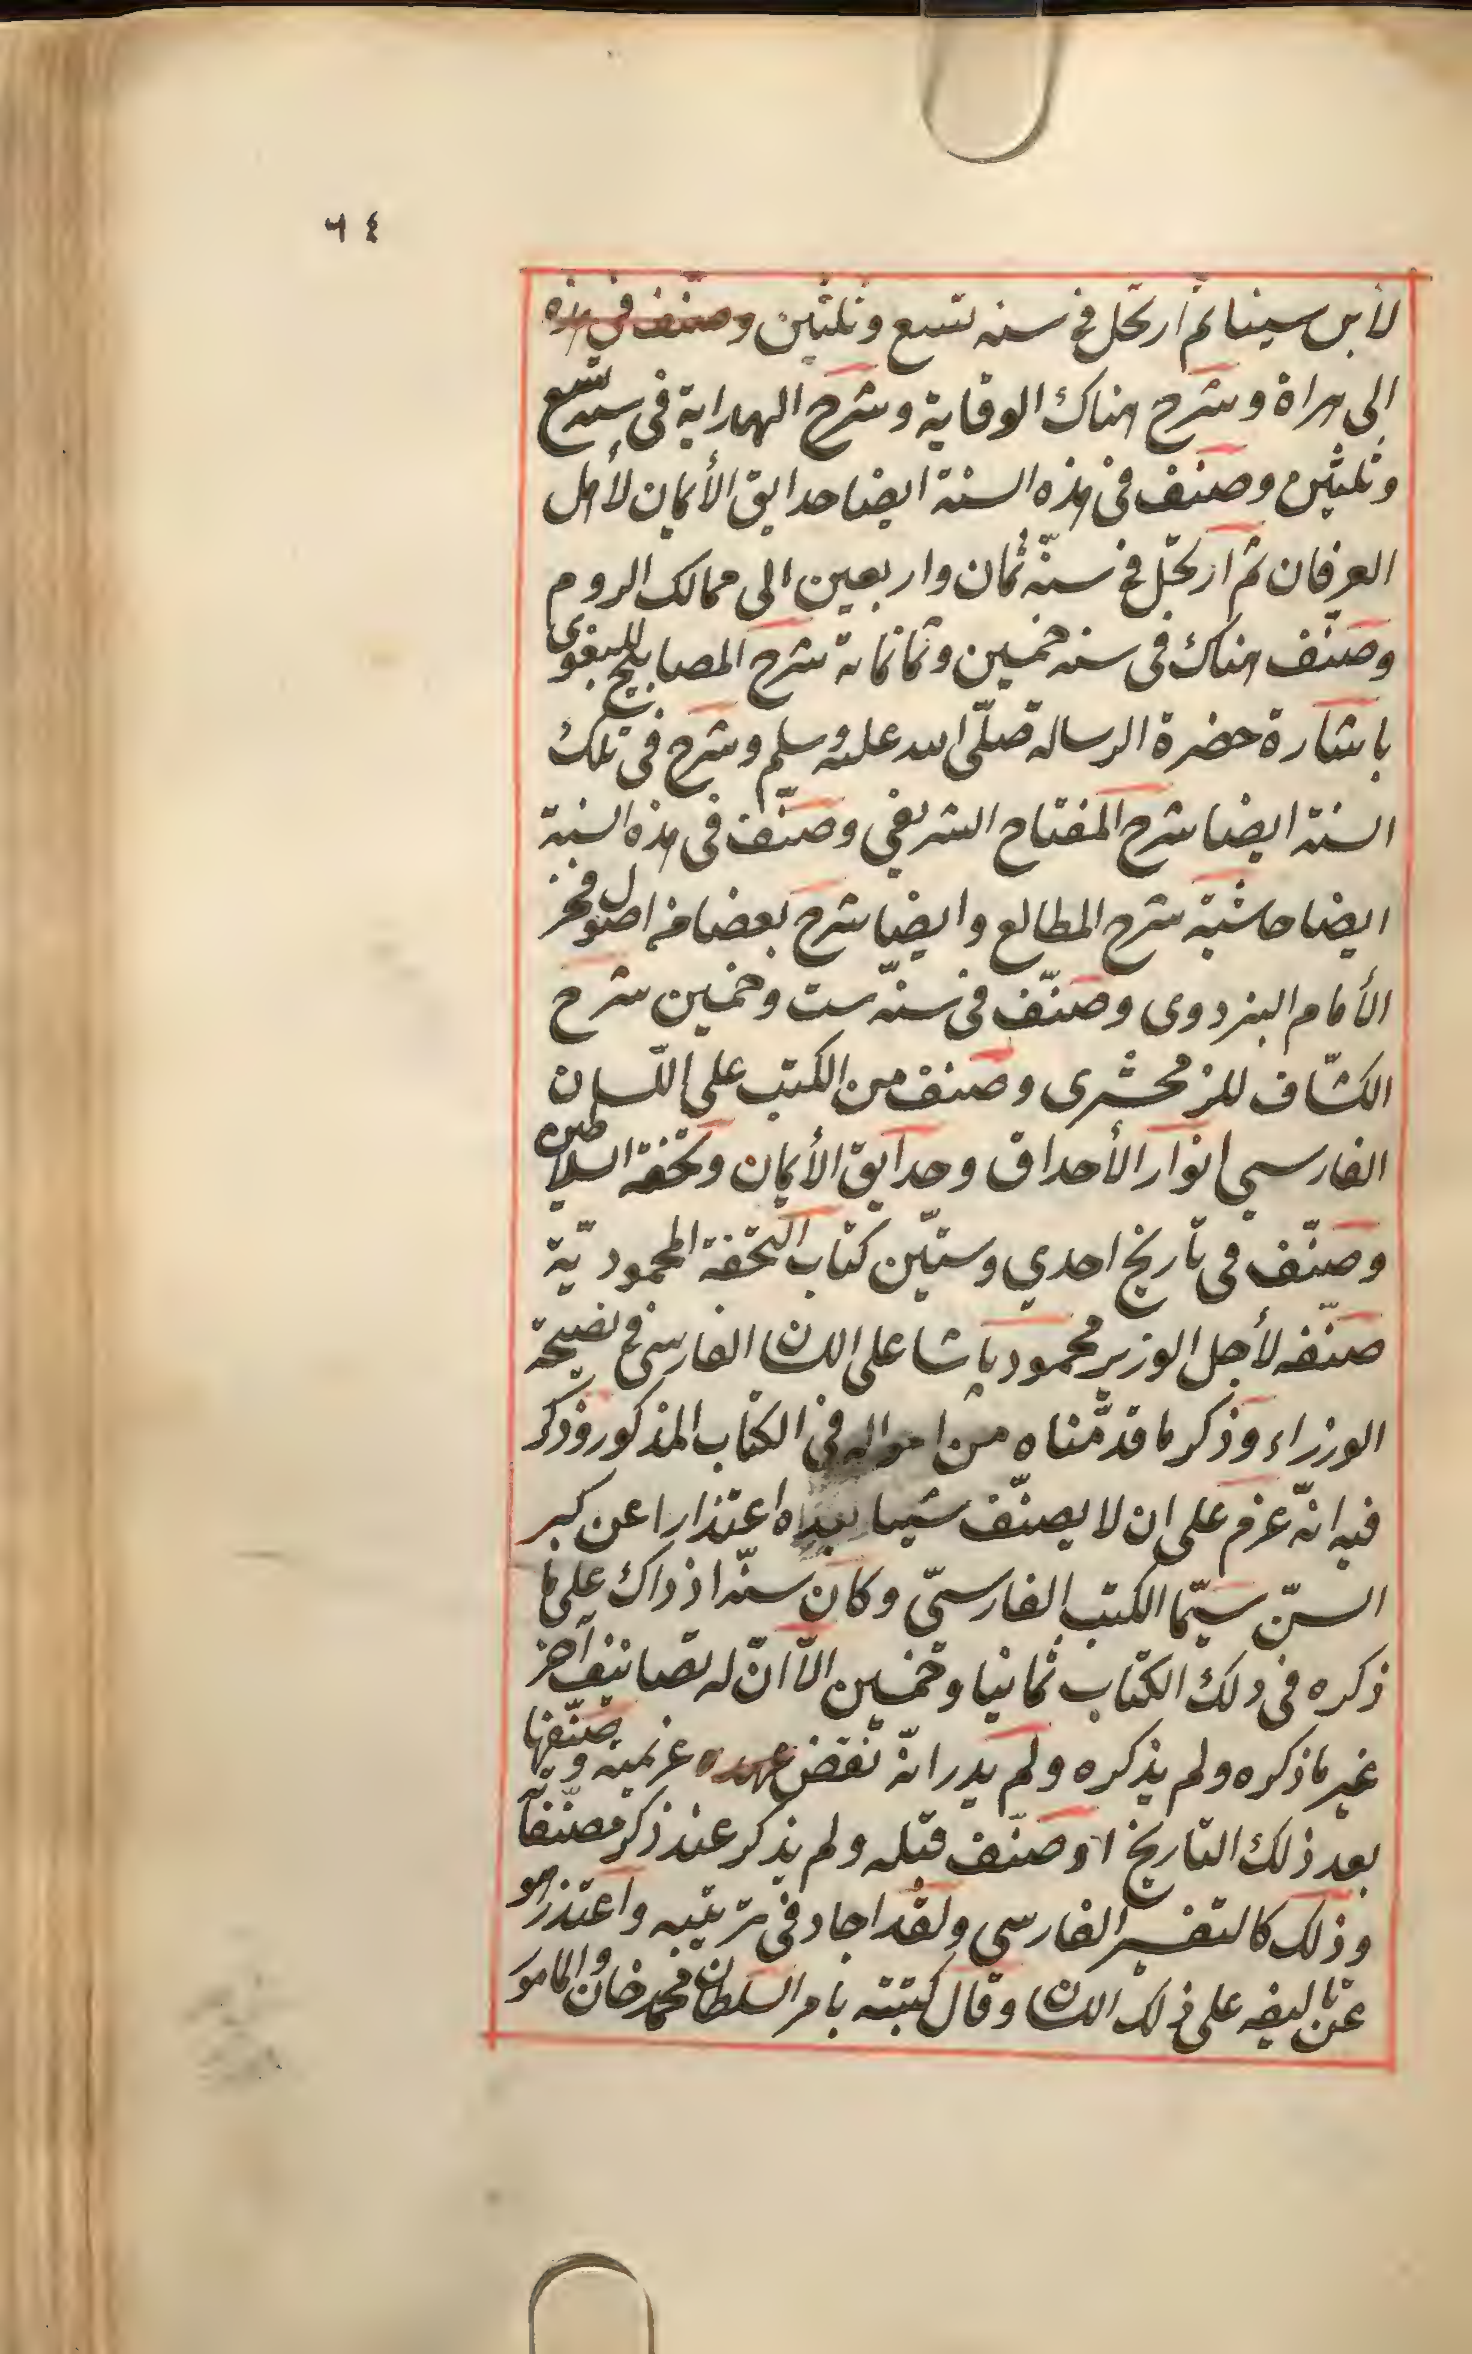 ٦٤
لابن سينا ثم ارتحل فى سنه تسع وثلثين وصنف فى هذه
الى هراة وشرح هناك الوقاية وشرح الهداية فى سنه تسع
وثلثين وصنف فى هذه السنة ايضا حدايق الأيمان لأهل
العرفان ثم ارتحل فى سنة ثمان واربعين الى ممالك الروم
وصنف هناك فى سنه خمسين وثمانمانه شرح المصابيح للبغوى
باشارة حضرة الرسالة صلّى الله عليه وسلم وشرح فى تلك
السنة ايضا شرح المفتاح الشريفي وصنّف فى هذه السنة
ايضا حاشية شرح المطالع وايضا شرح بعضا من اصول فخر
الأمام البزدوى وصنّف فى سنة ست وخمسين شرح
الكشّاف للزمخشرى وصنف من الكتب على اللّسان
الفارسي انوار الأحداق وحدايق الأيمان وتحفة السلاطين
وصنّف فى تاريخ احدي وستّين كتاب التحفة المحموديّة
صنّفه لأجل الوزير محمود باشا على اللسان الفارسى فى نصيحة
الوزراء وذكر ما قدّمناه من احواله فى الكتاب المذكور وذكر
فيه انّه عزم على ان لا يصنّف شيئا بعده اعتذارا عن كبر
السنّ سيّما الكتب الفارسىّ وكان سنّه اذ ذاك على ما
ذكره فى ذلك الكتاب ثمانيا وخمسين الاّ انّ له تصانيف آخر
غير ما ذكره ولم يذكره ولم يدر انّه نقض عهده عزيمته وصنّفها
بعد ذلك التاريخ او صنّف قبله ولم يذكر عند ذكر مصنّفاته
وذلك كالتفسير الفارسى ولقد اجاد فى ترتيبه واعتذر هو
عن تاليفه على ذلك اللسان وقال كتبته بامر السلطان محمد خان والمامور